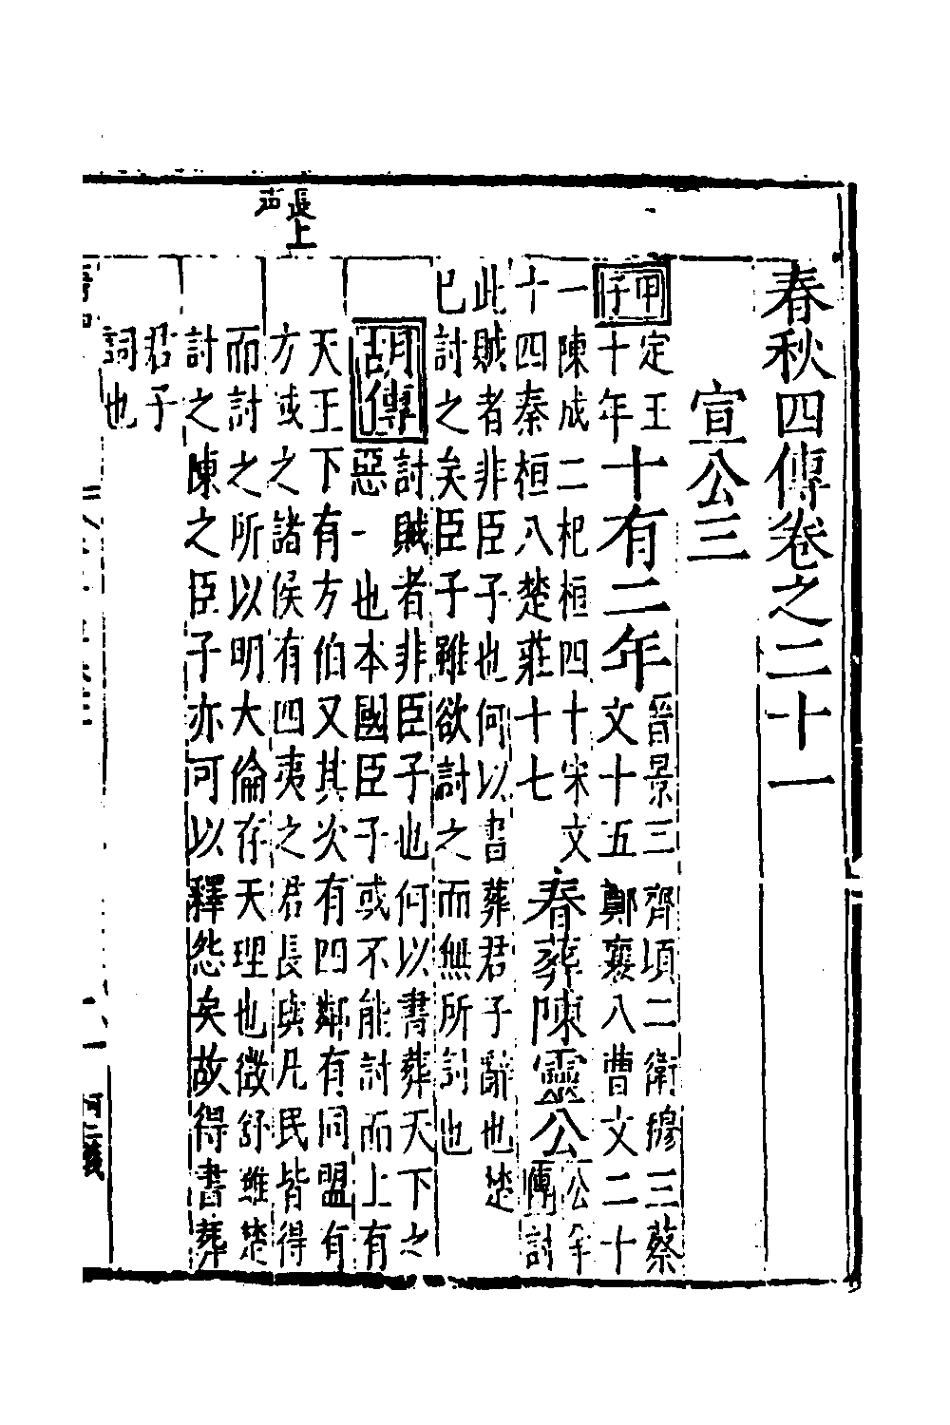 長上
声
春秋四傳卷之二十一
宣公三
甲子
定王
十年
十有二年
晉景三齊頃二衛穆三蔡
文十五鄭襄八曹文二十
一陳成二杞桓四十宋文
十四秦桓八楚莊十七
春葬陳靈公
公羊
傳討
此賊者非臣子也何以書葬君子辭也楚
已討之矣臣子雖欲討之而無所討也
胡傳
討賊者非臣子也何以書葬天下之
惡一也本國臣子或不能討而上有
天王下有方伯又其次有四鄰有同盟有
方或之諸侯有四夷之君長與凡民皆得
而討之所以明大倫存天理也徵舒雖楚
討之陳之臣子亦可以釋怨矣故得書葬
君子
詞也